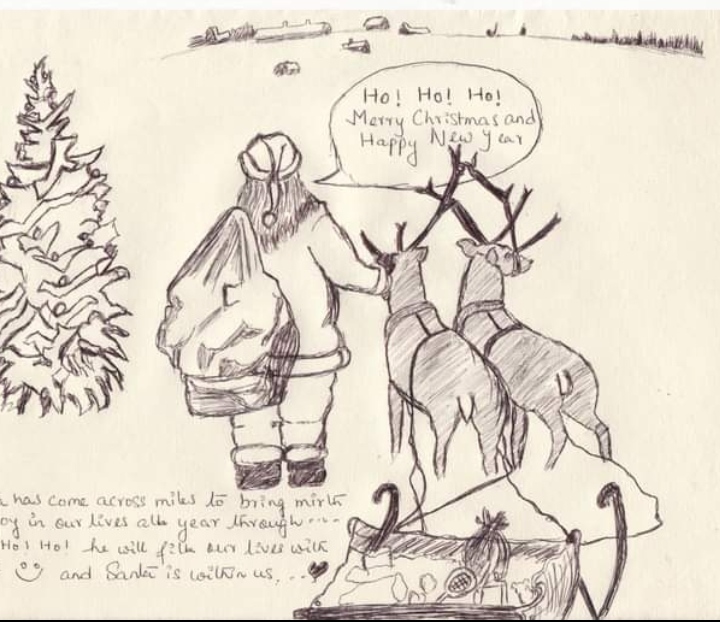 Ho! Ho! Ho!
Merry Christmas and
Happy New Year
has come across miles to bring mirth
oy in our lives all year through....
Ho! Ho! he will fill our lives with
and Santa is within us, ...